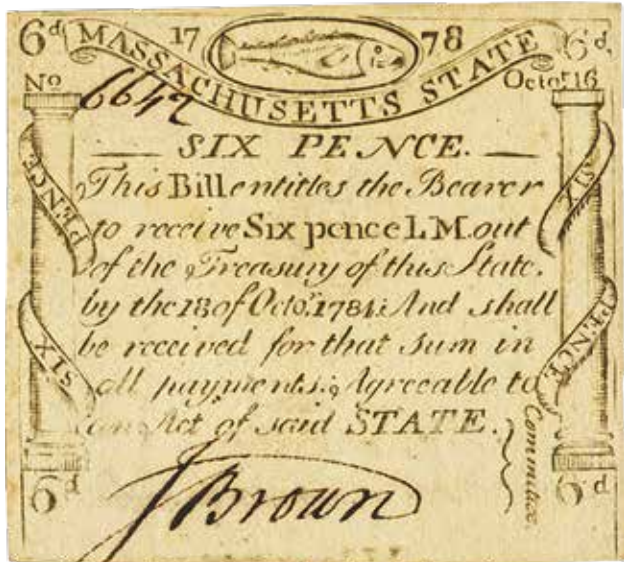 6d 17 78 6d
MASSACHUSETTS STATE
No 6642 Octor. 16
SIX PENCE.
This Bill entitles the Bearer
to receive Six pence L M. out
of the Treasury of this State.
by the 18 of Octor. 1784: And shall
be received for that Sum in
all payments: Agreeable to
an Act of said STATE.
Committee.
J Brown
6d 6d
SIX PENCE
SIX PENCE